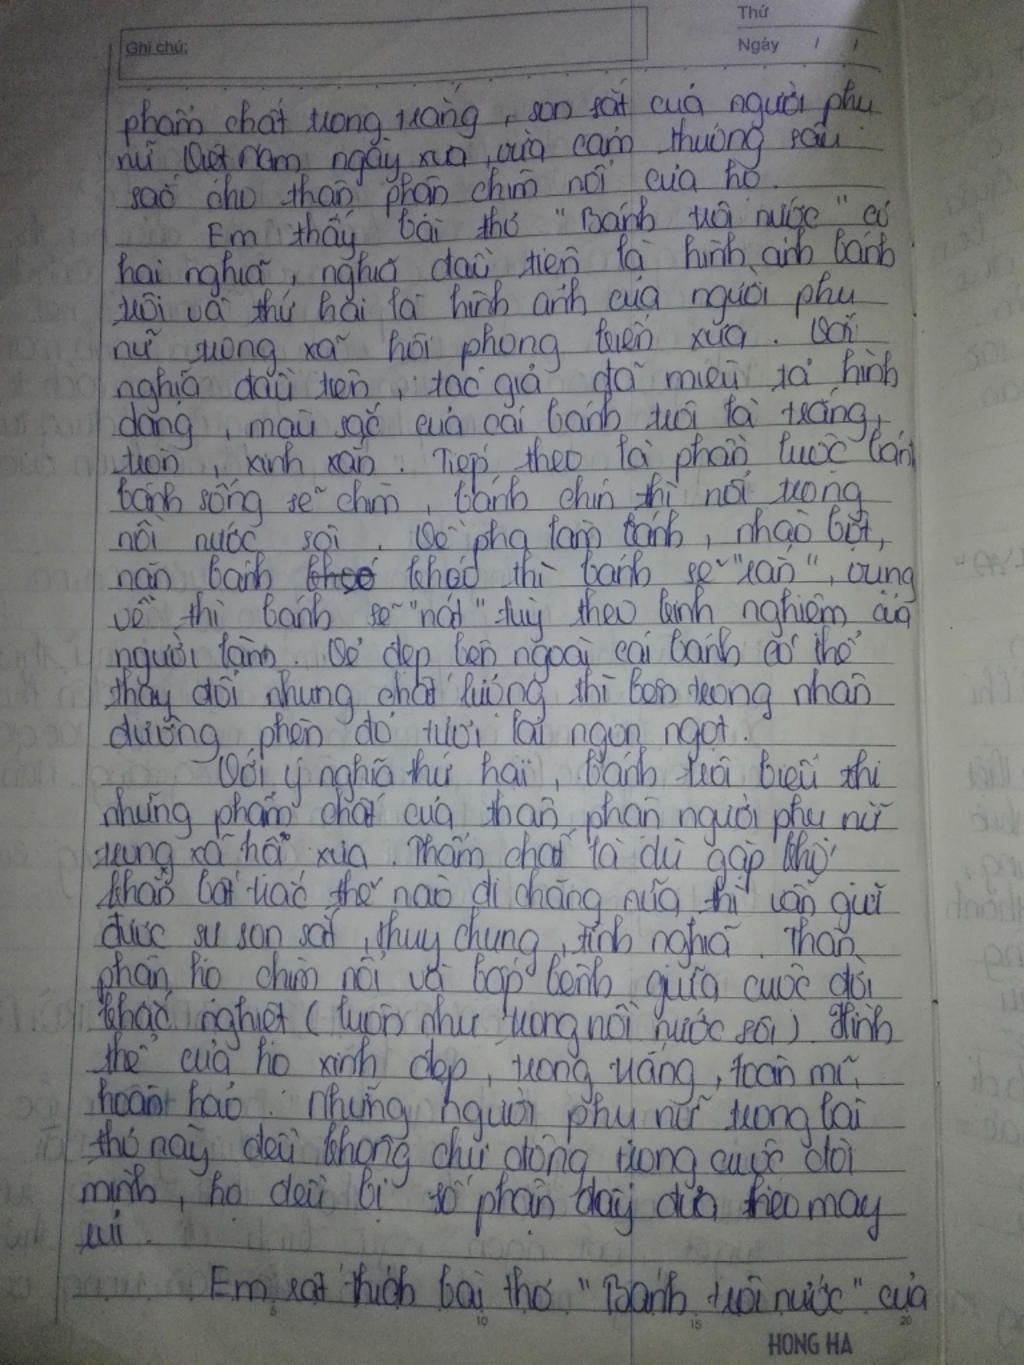 Ghi chú:
Thứ
Ngày / /
phẩm chất trong trắng, son sắt của người phụ
nữ Việt Nam ngày xưa, vừa cảm thương sâu
sắc cho thân phận chìm nổi của họ.
Em thấy bài thơ "Bánh trôi nước" có
hai nghĩa, nghĩa đầu tiên là hình ảnh bánh
trôi và thứ hai là hình ảnh của người phụ
nữ trong xã hội phong kiến xưa. Với
nghĩa đầu tiên, tác giả đã miêu tả hình
dáng, màu sắc của cái bánh trôi là trắng,
tròn, xinh xắn. Tiếp theo là phần luộc bánh
bánh sống sẽ chìm, bánh chín thì nổi trong
nồi nước sôi. Về pha làm bánh, nhào bột,
nặn bánh khéo thì bánh sẽ "rắn", vụng
về thì bánh sẽ "nát" tuỳ theo kinh nghiệm của
người làm. Vẻ đẹp bên ngoài cái bánh có thể
thay đổi nhưng chất lượng thì bên trong nhân
đường phên đỏ tươi lại ngon ngọt.
Với ý nghĩa thứ hai, bánh trôi biểu thi
những phẩm chất của thân phận người phụ nữ
trong xã hội xưa. Phẩm chất là dù gặp khó
khăn bất trắc thế nào đi chăng nữa thì vẫn giữ
được sự son sắt, thuỷ chung, tình nghĩa. Thân
phận họ chìm nổi và bấp bênh giữa cuộc đời
khắc nghiệt (luôn như trong nồi nước sôi). Hình
thể của họ xinh đẹp, trong trắng, toàn mĩ,
hoàn hảo. Những người phụ nữ trong bài
thơ này đều không chủ động trong cuộc đời
mình, họ đều bị số phận đẩy đưa theo may
rủi.
Em rất thích bài thơ "Bánh trôi nước" của
5 10 15 20
HONG HA